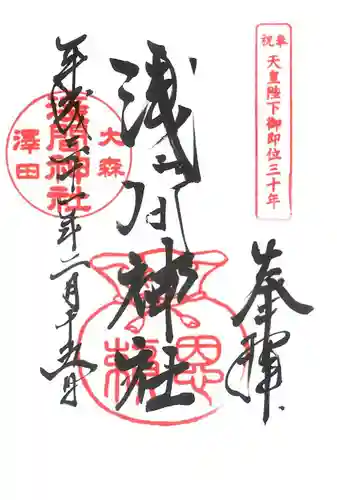 奉祝 天皇陛下御即位三十年
奉拝
浅间神社
大森
浅间神社
澤田
平成三十一年二月十五日